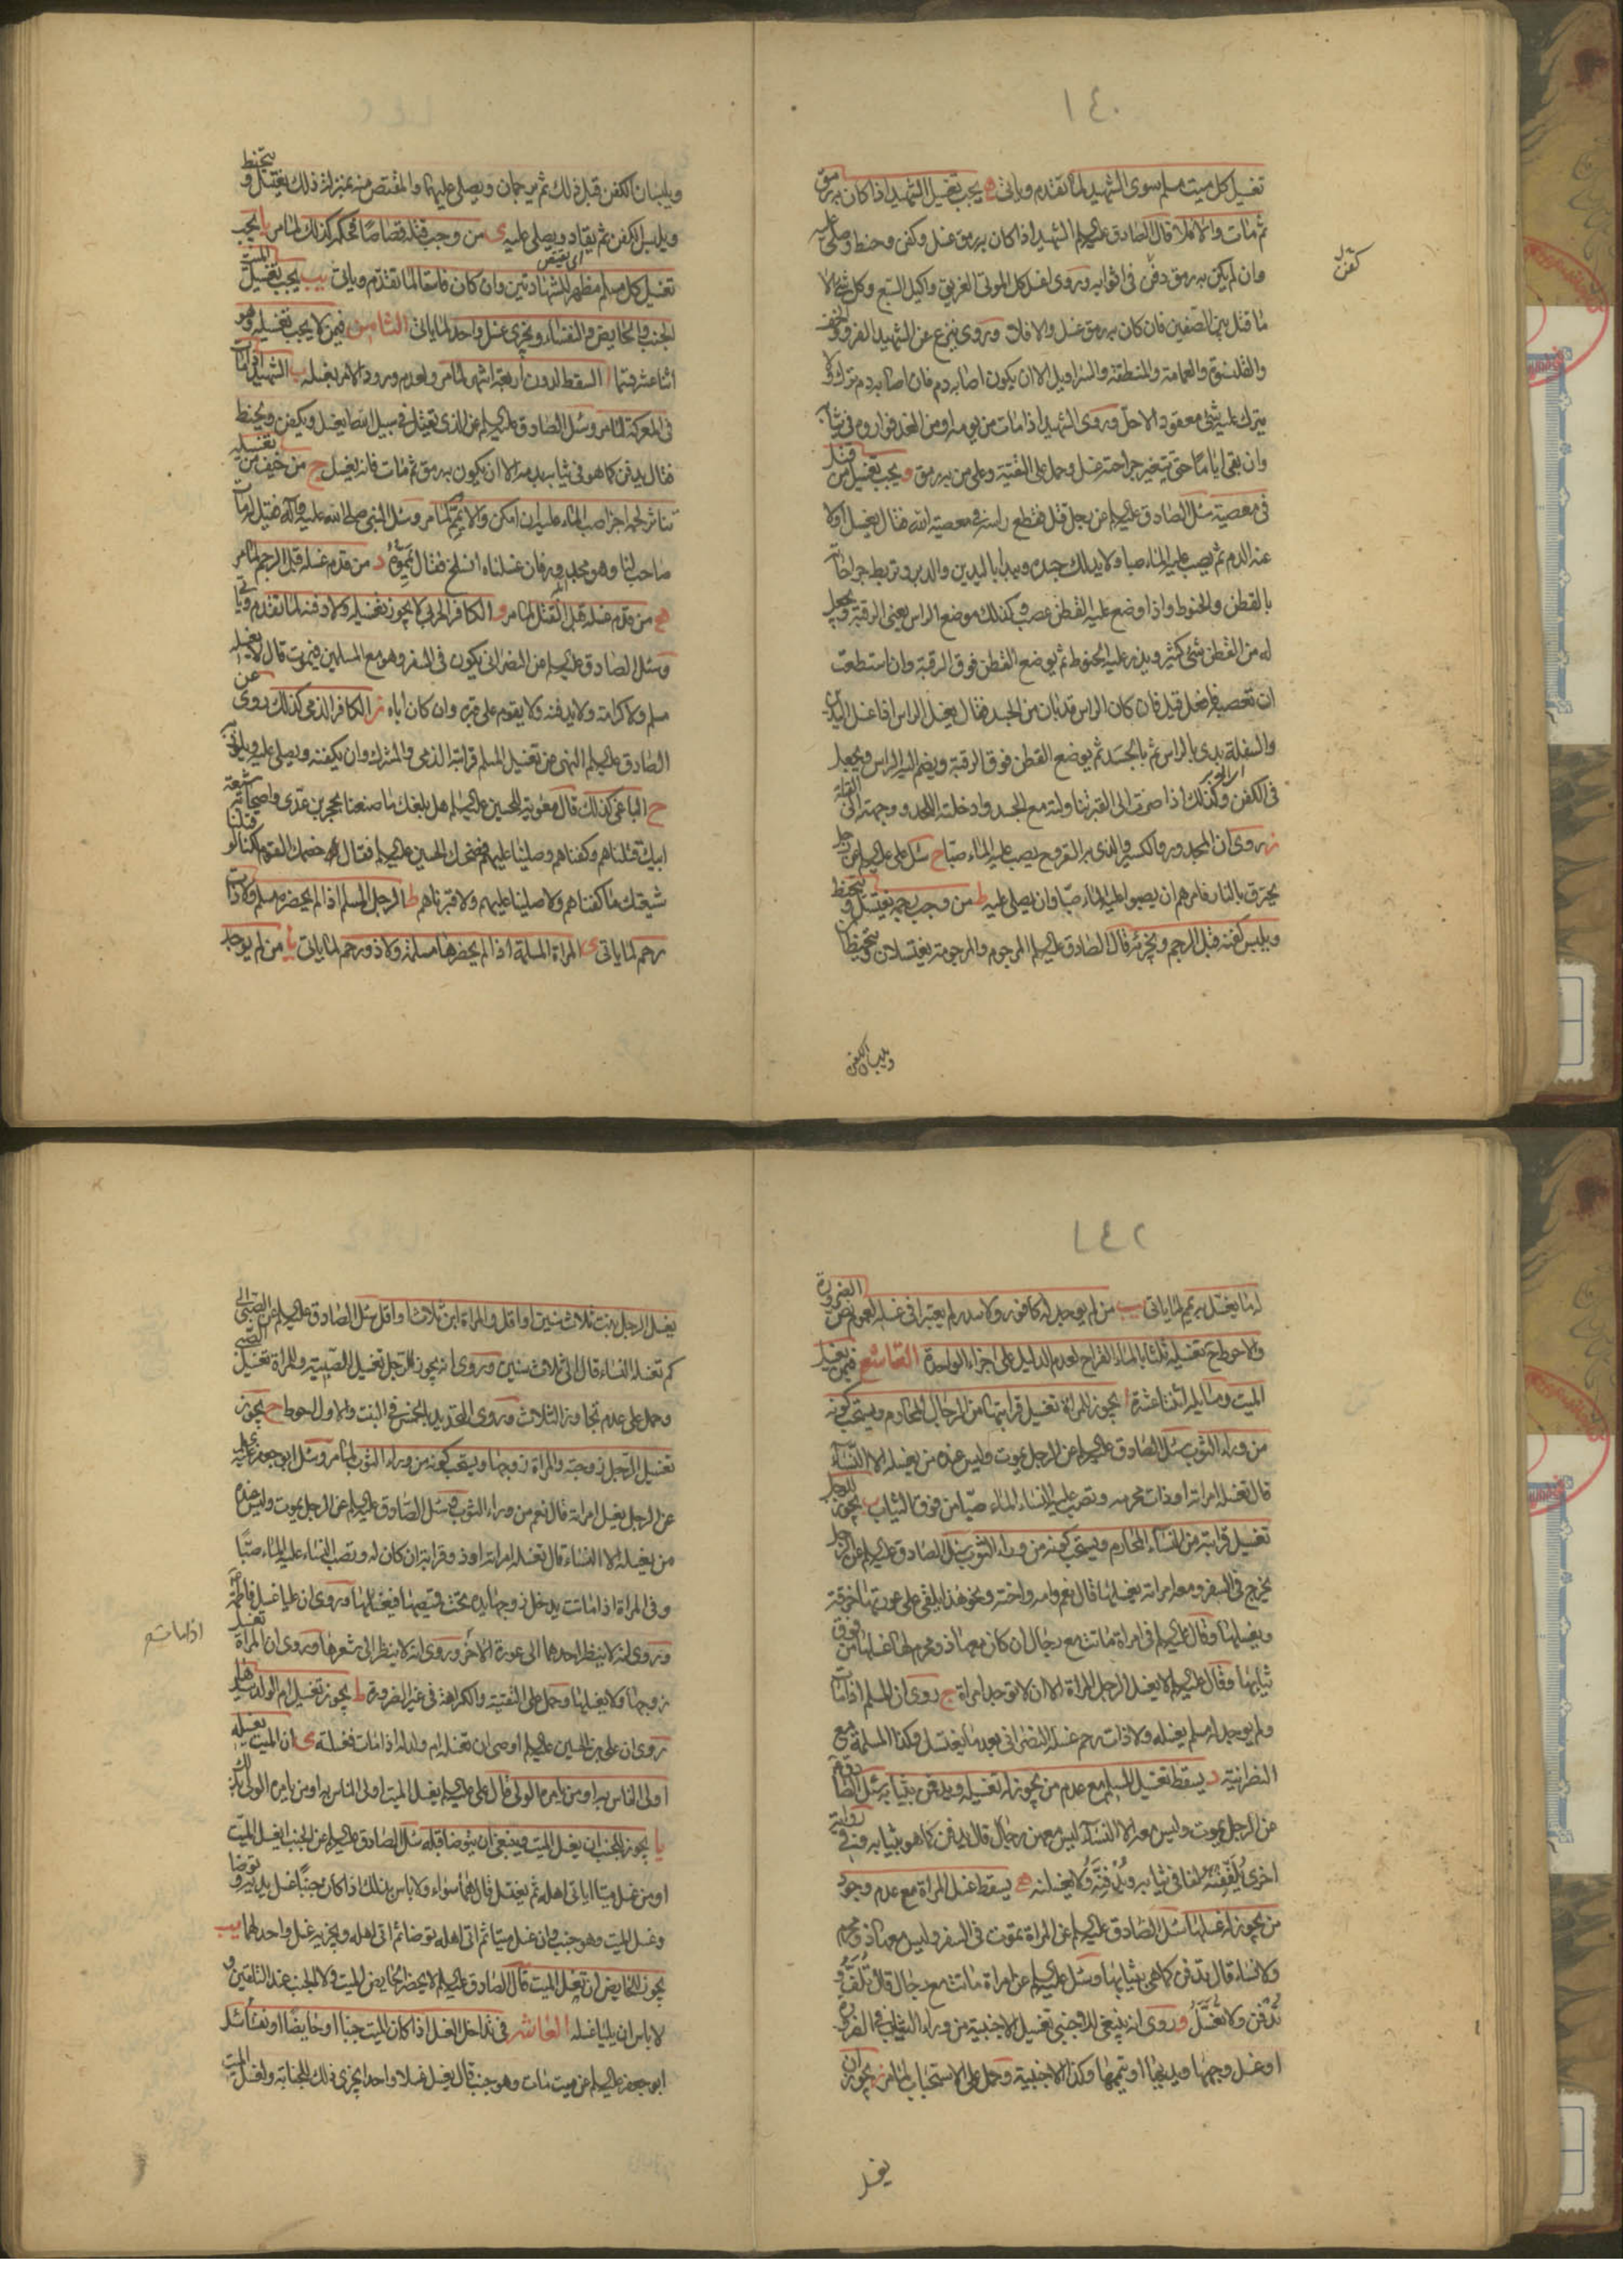 ١٤٠
تغسيل كل ميت مسلم سوى الشهيد لما تقدم وياتى ه يجب تغسيل الشهيد اذا كان به رمق
ثم مات والا فلا قال الصادق عليه السلم الشهيد اذا كان به رمق غسل وكفن وحنط وصلى عليه
وان لم يكن به رمق دفن فى اثوابه وروى اغسل كل الموتى الغريق واكيل السبع وكل شئ الا
ما قتل بين الصفين فان كان به رمق غسل والا فلا وروى ينزع عن الشهيد الفرو والخف
والقلنسوة والعمامة والمنطقة والسراويل الا ان يكون اصابه دم فان اصابه دم ترك ولا
يترك عليه شئ معقود الا حل وروى الشهيد اذا مات من يومه او من الغد فواروه فى ثيابه
وان بقى اياما حتى تتغير جراحته غسل وحمل على التقية وعلى من به رمق و يجب تغسيل من قتل
فى معصية سئل الصادق عليه السلم عن رجل قتل فقطع راسه فى معصية الله فقال يغسل اولا
عنه الدم ثم يصب عليه الماء صبا ولا يدلك جسده ويبدا باليدين والدبر وتربط جراحاته
بالقطن والحنوط واذا وضع عليه القطن عصب وكذلك موضع الراس يعنى الرقبة ويجعل
له من القطن شئ كثير ويذر عليه الحنوط ثم يوضع القطن فوق الرقبة وان استطعت
ان تعصبه فافعل قيل فان كان الراس قد بان من الجسد فقال يغسل الراس اذا غسل اليدين
والسفلة بدئ بالراس ثم بالجسد ثم يوضع القطن فوق الرقبة ويضم اليه الراس ويجعل
فى الكفن وكذلك اذا صرت الى القبر تناولته مع الجسد وادخلته اللحد ووجهته الى القبلة
ز روى ان المجدور والكسير والذى به القروح يصب عليه الماء صبا ح سئل على عليه السلم عن رجل
يحترق بالنار فامرهم ان يصبوا عليه الماء صبا وان يصلى عليه ط من وجب رجمه يغتسل ويتحنط
ويلبس كفنه قبل الرجم ويجزئه قال الصادق عليه السلم المرجوم والمرجومة يغتسلان ويتحنطان
ويلبسان الكفن
ويلبسان الكفن قبل ذلك ثم يرجمان ويصلى عليهما والمقتص منه بمنزلة ذلك يغتسل ويتحنط
ويلبس الكفن ثم يقاد ويصلى عليه ى من وجب قتله قصاصا فحكمه كذلك لما مر يا يجب
تغسيل كل مسلم مظهر للشهادتين وان كان فاسقا لما تقدم وياتى يب يجب تغسيل الميت
الجنب والحايض والنفساء ويجزى غسل واحد لما ياتى الثامن فيمن لا يجب تغسيله وهو
اثنا عشر قسما ا السقط لدون اربعة اشهر لما مر ولعدم ورود الامر بغسله ب الشهيد اذا مات
فى المعركة لما مر وسئل الصادق عليه السلم عن الذى يقتل فى سبيل الله ايغسل ويكفن ويحنط
فقال يدفن كما هو فى ثيابه بدمه الا ان يكون به رمق ثم مات فانه يغسل ج من خيف من تغسيله
تناثر لحمه اجزا صب الماء عليه ان امكن والا يمم لما مر وسئل النبى صلى الله عليه وآله فقيل له مات
صاحب لنا وهو مجدور فان غسلناه انسلخ فقال يمموه د من قدم غسله قبل الرجم لما مر
ه من قدم غسله قبل القتل لما مر و الكافر الحربى لا يجوز تغسيله ولا دفنه لما تقدم وياتى
وسئل الصادق عليه السلم عن النصرانى يكون فى السفر وهو مع المسلمين فيموت قال لا يغسله
مسلم ولا كرامة ولا يدفنه ولا يقوم على قبره وان كان اباه ز الكافر الذمى كذلك روى عن
الصادق عليه السلم النهى عن تغسيل المسلم قرابته الذمى والمشرك وان يكفنه ويصلى عليه ويلوذ به
ح الباغى كذلك قال معوية للحسين عليه السلم هل بلغك ما صنعنا بحجر بن عدى واصحابه شيعة
ابيك قتلناهم وكفناهم وصلينا عليهم فضحك الحسين عليه السلم فقال خصمك القوم لكنا لو قتلنا
شيعتك ما كفناهم ولا صلينا عليهم ولا قبرناهم ط الرجل المسلم اذا لم يحضره مسلم ولا ذات
رحم لما ياتى ى المراة المسلمة اذا لم يحضرها مسلمة ولا ذو رحم لما ياتى يا من لم يوجد
١٤٢
له ما يغتسل به يمم لما ياتى يب من لم يوجد له كافور ولا سدر لم يعتبرا فى غسله لعموم نص الضرورة
والاحوط ح تغسيله ثلثا بالماء القراح لعدم الدليل على اجزاء الواحدة التاسع فيمن يغسل
الميت ومسايله اثنتا عشرة ا يجوز للمراة تغسيل قرابتها من الرجال المحارم ويستحب كونه
من وراء الثوب سئل الصادق عليه السلم عن الرجل يموت وليس عنده من يغسله الا النساء
قال تغسله امراته او ذات محرمه وتصب عليه النساء الماء صبا من فوق الثياب ب يجوز للرجل
تغسيل قرابته من النساء المحارم ويستحب كونه من وراء الثوب سئل الصادق عليه السلم عن الرجل
يخرج فى السفر ومعه امراته يغسلها قال نعم وامه واخته ونحو هذا يلقى على عورتها خرقة
ويغسلها وقال عليه السلم فى امراة ماتت مع رجال ان كان معها ذو محرم لها غسلها من فوق
ثيابها وقال عليه السلم لا يغسل الرجل المراة الا ان لا توجد امراة ج روى ان المسلم اذا مات
ولم يوجد له مسلم يغسله ولا ذات رحم غسله النصرانى بعد ما يغتسل وكذا المسلمة مع
النصرانية د يسقط تغسيل المسلم مع عدم من يجوز له تغسيله ويدفن بثيابه سئل الصادق عليه السلم
عن الرجل يموت وليس معه الا النساء ليس معهن رجال قال يدفن كما هو بثيابه وفى رواية
اخرى يلففنه لفا فى ثيابه ويدفنه ولا يغسلنه ه يسقط غسل المراة مع عدم وجود
من يجوز له غسلها سئل الصادق عليه السلم عن المراة تموت فى السفر وليس معها ذو محرم
ولا نساء قال تدفن كما هى بثيابها وسئل عليه السلم عن امراة ماتت مع رجال قال تلف و
تدفن ولا تغسل و روى انه ينبغى للاجنبى تغسيل الاجنبية من وراء الثياب فى الضرورة
او غسل وجهها ويديها او تيممها وكذا الاجنبية وحمل على الاستحباب لما مر ز يجوز ان
يغسل
يغسل الرجل بنت ثلاث سنين او اقل والمراة ابن ثلاث او اقل سئل الصادق عليه السلم عن الصبى الى
كم تغسله النساء قال الى ثلاث سنين وروى انه يجوز للرجل تغسيل الصبية والمراة تغسيل الصبى
وحمل على عدم تجاوز الثلاث وروى التحديد بالخمس فى البنت والاول احوط ح يجوز
تغسيل الرجل زوجته والمراة زوجها ويستحب كونه من وراء الثوب لما مر وسئل ابو جعفر عليه السلم
عن الرجل يغسل امراته قال نعم من وراء الثوب سئل الصادق عليه السلم عن الرجل يموت وليس عنده
من يغسله الا النساء قال تغسله امراته او ذو قرابته ان كان له وتصب النساء عليه الماء صبا
وفى المراة اذا ماتت يدخل زوجها يده تحت قميصها فيغسلها وروى ان عليا غسل فاطمة
وروى انه لا ينظر احدهما الى عورة الآخر وروى انه لا ينظر الى شعرها وروى ان المراة تغسل
زوجها ولا يغسلها وحمل على التقية والكراهة فى غير الضرورة ط يجوز تغسيل ام الولد سيدها
روى ان على بن الحسين عليه السلم اوصى ان تغسله ام ولد له اذا مات فغسلته ى ان الميت يغسله
اولى الناس به او من يامره الولى قال على عليه السلم يغسل الميت اولى الناس به او من يامره الولى بذلك
يا يجوز للجنب ان يغسل الميت وينبغى ان يتوضا قبله سئل الصادق عليه السلم عن الجنب ايغسل الميت
او من غسل ميتا اياتى اهله ثم يغتسل قال هما سواء ولا باس بذلك اذا كان جنبا غسل يديه وتوضا
وغسل الميت وهو جنب وان غسل ميتا ثم اتى اهله توضا ثم اتى اهله ويجزيه غسل واحد لهما يب
يجوز للحايض ان تغسل الميت قال الصادق عليه السلم لا يحضر الحايض الميت ولا الجنب عند التلقين و
لا باس ان يليا غسله العاشر فى تداخل الغسل اذا كان الميت جنبا او حايضا او نفساء سئل
ابو جعفر عليه السلم عن ميت مات وهو جنب قال يغسل غسلا واحدا يجزى ذلك للجنابة ولغسل الميت